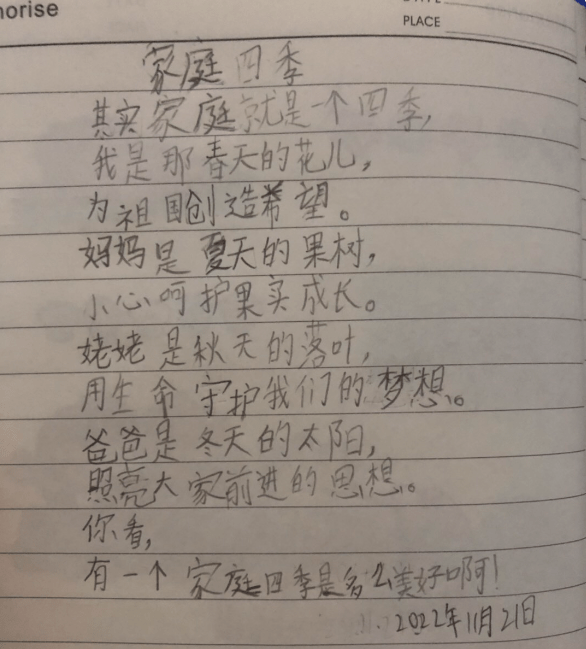 norise
PLACE
家庭四季
其实家庭就是一个四季,
我是那春天的花儿,
为祖国创造希望。
妈妈是夏天的果树,
小心呵护果实成长。
姥姥是秋天的落叶,
用生命守护我们的梦想。
爸爸是冬天的太阳,
照亮大家前进的思想。
你看,
有一个家庭四季是多么美好啊!
2022年11月21日